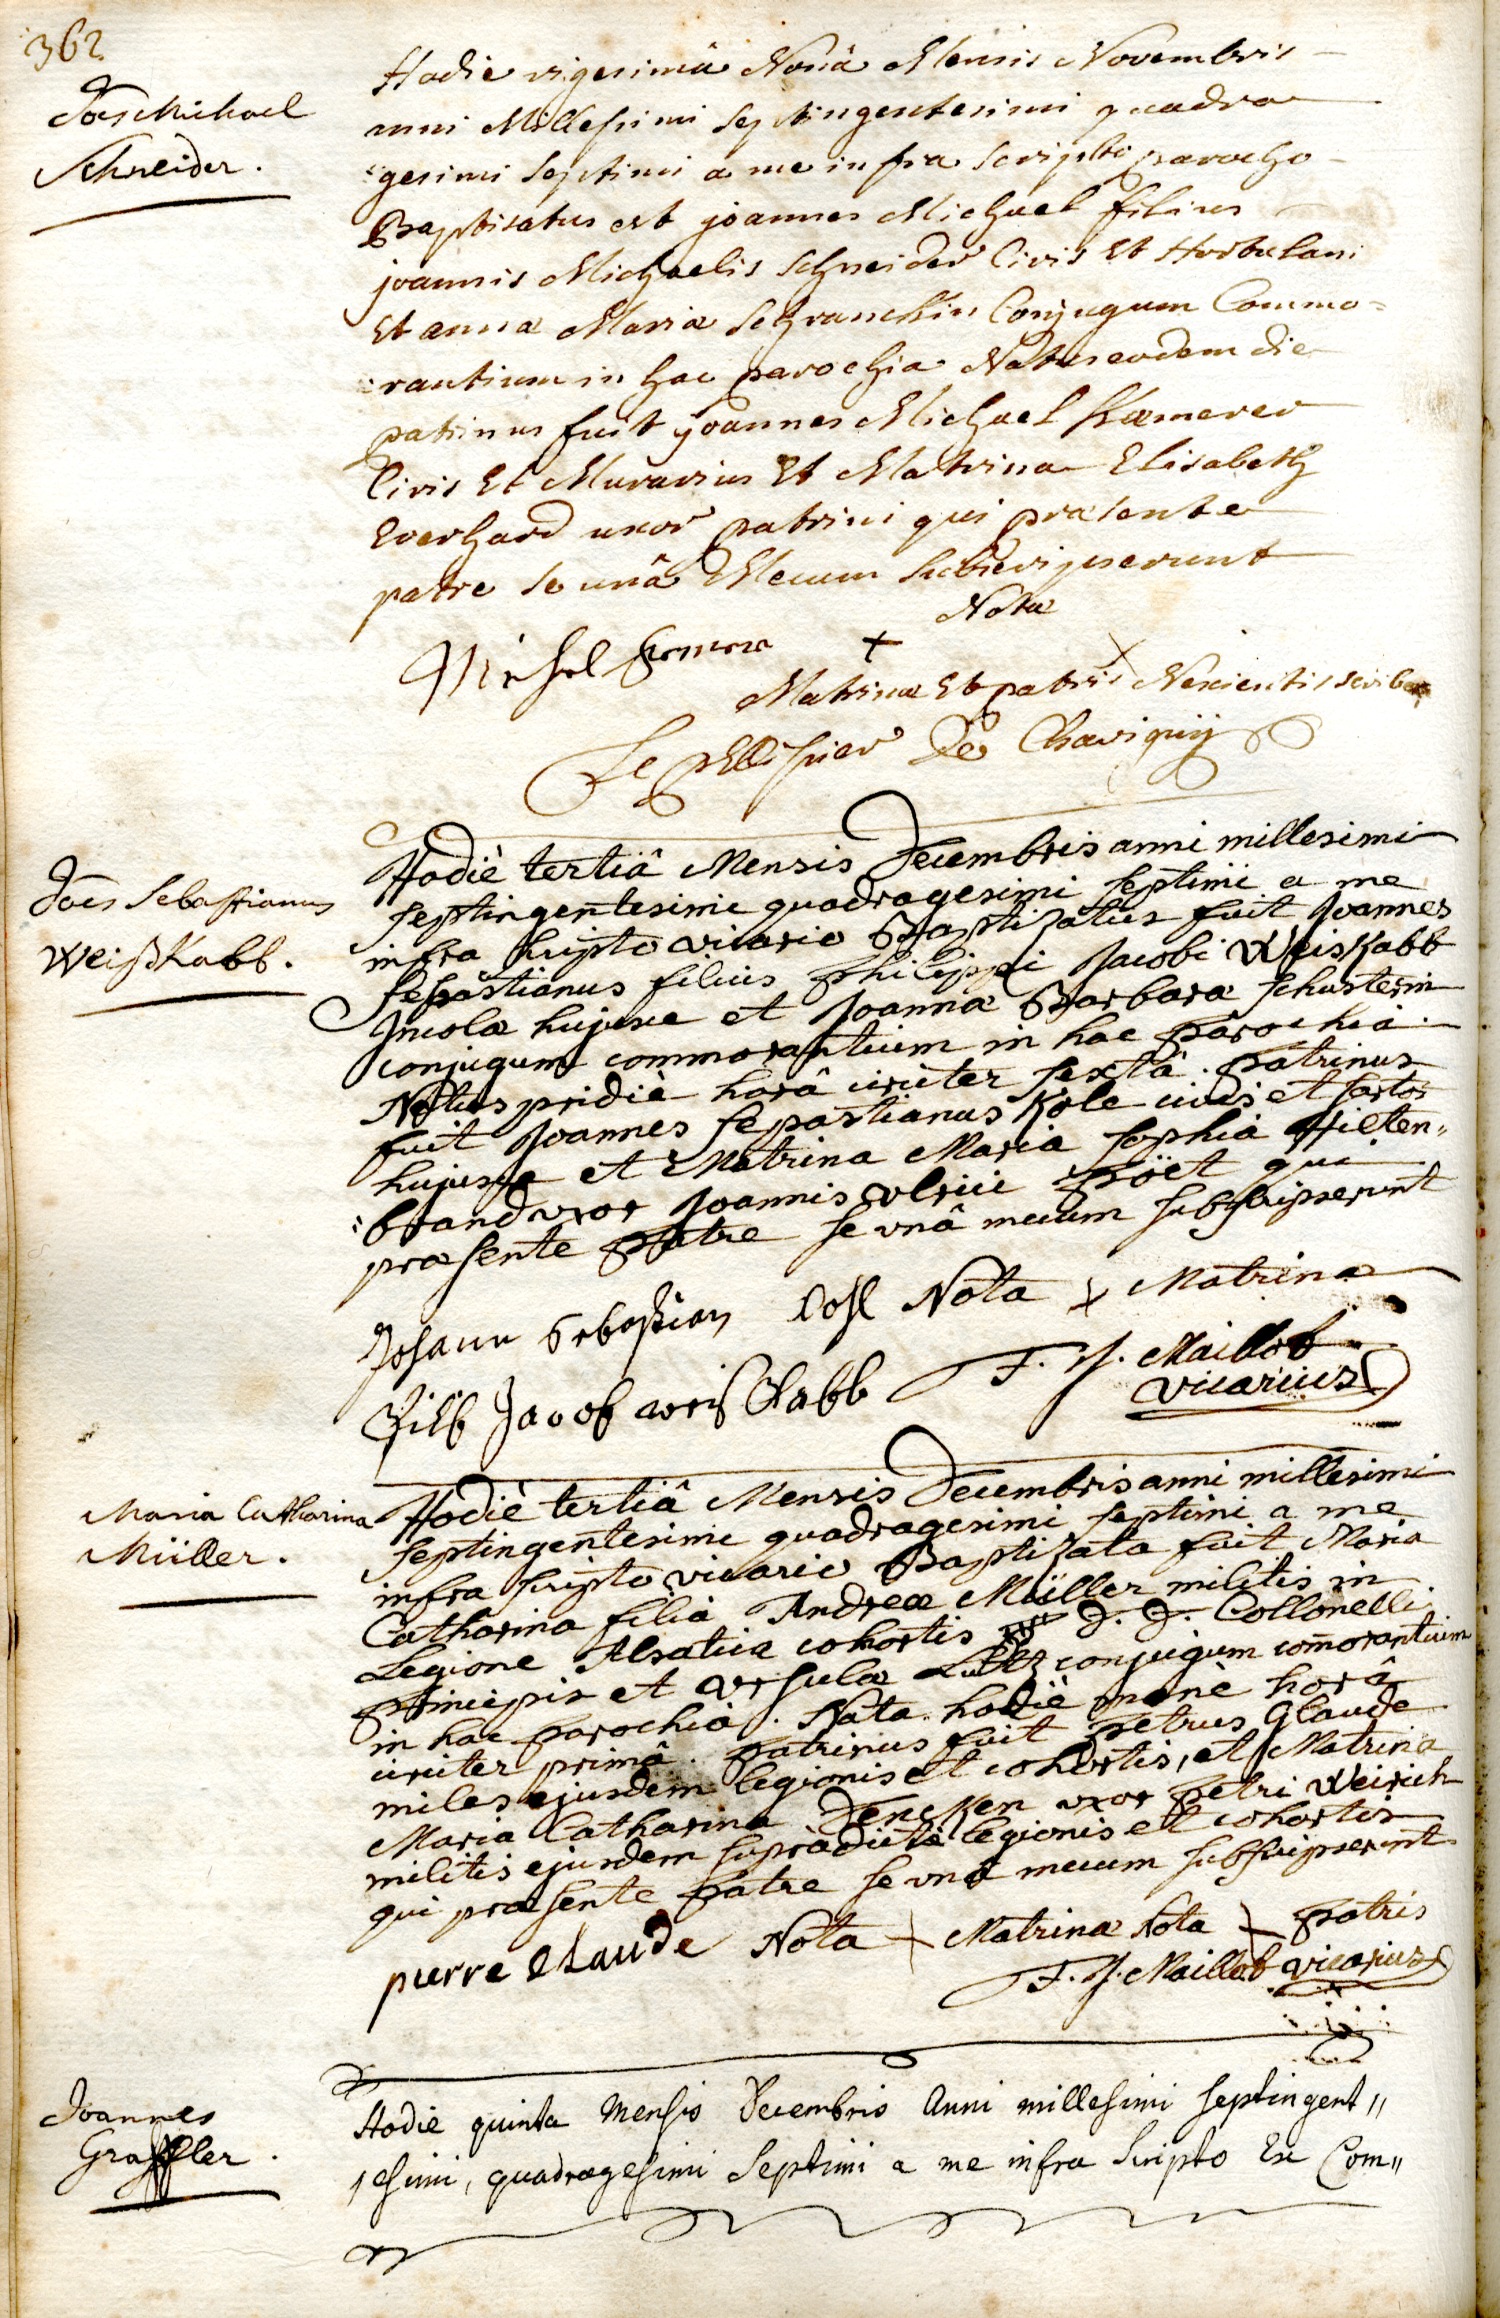 362
Joes Michael
Schneider.
Hodie vigesimâ Nonâ Mensis Novembris
anni Millesimi septingentesimi quadra
gesimi septimi a me infra scripto parocho
Baptisatus est joannes Michael filius
joannis Michaelis schneider Civis Et Hortulani
Et annæ Mariæ schranckin Conjugum Commo=
rantium in hac parochia Natus eodem die
patrinus fuit joannes Michael Kamerer
Civis Et Murarius Et Matrina Elisabeth
Everhard uxor patrini qui præsente
patre se unâ Mecum subscripserunt
Nota
Michel
+ Matrinæ Et patris Nescientis scribere
Le pellisier De Chavignij
Joes Sebastianus
Weißkabb.
Hodiè tertiâ Mensis Decembris anni millesimi
septingentesimi quadragesimi septimi a me
infra scripto vicario Baptizatus fuit Joannes
Sepastianus filius Philippi Jacobi Weiskabb
Incolæ hujusce et Joannæ Barbaræ schusterin
conjugum commorantium in hac parochiâ.
Natus pridiè horâ circiter sextâ. patrinus
fuit Joannes Sepastianus Kole civis et sartor
hujusce et Matrina Maria Sophia Hielten„
brand vxor Joannis vlrici Pöet qui
præsente patre se vnâ mecum subscripserunt
Johann Sebastian Cohl Nota + Matrinæ
Filb Jacob weiß Kabb F. J. Maillot
vicarius
Maria Catharina
Müller.
Hodiè tertiâ Mensis Decembris anni millesimi
septingentesimi quadragesimi septimi a me
infra scripto vicario Baptizata fuit Maria
Catharina filia Andreæ Müller militis in
Legione Alsatica cohortis D. D. Collonelli
principis et Vrsulæ conjugum comorantium
in hac parochiâ. Nata hodiè manè horâ
circiter primâ. patrinus fuit petrus Glaude
miles ejusdem legionis et cohortis, et Matrina
Maria Catharina Dencken vxor petri Weirich
militis ejusdem supradictæ legionis et cohortis
qui præsente patre se vnâ mecum subscripserunt
pierre Claude Nota + Matrinæ Nota + patris
F. J. Maillot vicarius
Joannes
Graffler.
Hodie quinta Mensis Decembris Anni millesimi septingent„
esimi, quadragesimi Septimi a me infra Scripto Ex Com„